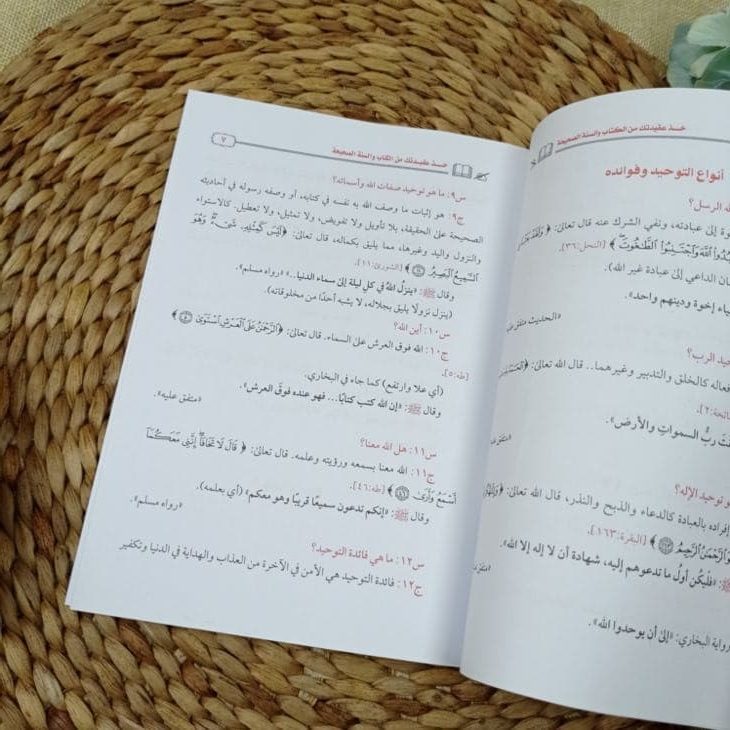 خـذ عقيدتك من الكتاب والسنة الصحيحة
أنواع التوحيد وفوائده
الله الرسل؟
إلى عبادته، ونفي الشرك عنه قال تعالى: ﴿وَلَقَدْ بَعَثْنَا
ٱللَّهَ وَٱجْتَنِبُوا۟ ٱلطَّـٰغُوتَ﴾ [النحل: ٣٦].
الداعي إلى عبادة غير الله).
إخوة ودينهم واحد».
«الحديث متفق
الرب؟
كالخلق والتدبير وغيرهما.. قال الله تعالى:
٢].
ربُّ السموات والأرض».
«متفق
توحيد الإله؟
إفراده بالعبادة كالدعاء والذبح والنذر، قال الله تعالى:
ٱلرَّحْمَـٰنُ ٱلرَّحِيمُ﴾ [البقرة: ١٦٣].
«فليكن أولُ ما تدعوهم إليه، شهادة أن لا إله إلا الله».
رواية البخاري: «إلى أن يوحدوا الله».
٧
خـذ عقيدتك من الكتاب والسنة الصحيحة
س٩: ما هو توحيد صفات الله وأسمائه؟
ج٩: هو إثبات ما وصف الله به نفسه في كتابه، أو وصفه رسوله في أحاديثه
الصحيحة على الحقيقة، بلا تأويل ولا تفويض، ولا تمثيل، ولا تعطيل. كالاستواء
والنزول واليد وغيرها، مما يليق بكماله، قال تعالى: ﴿لَيْسَ كَمِثْلِهِۦ شَىْءٌ وَهُوَ
ٱلسَّمِيعُ ٱلْبَصِيرُ ١١﴾ [الشورى: ١١].
وقال ﷺ: «ينزلُ اللهُ في كلِ ليلة إلى سماء الدنيا..» «رواه مسلم».
(ينزل نزولًا يليق بجلاله، لا يشبه أحدًا من مخلوقاته)
س١٠: أين الله؟
ج١٠: الله فوق العرش على السماء. قال تعالى: ﴿ٱلرَّحْمَـٰنُ عَلَى ٱلْعَرْشِ ٱسْتَوَىٰ ٥﴾
[طه: ٥].
(أي علا وارتفع) كما جاء في البخاري.
وقال ﷺ: «إن الله كتب كتابًا... فهو عنده فوق العرش».
«متفق عليه».
س١١: هل الله معنا؟
ج١١: الله معنا بسمعه ورؤيته وعلمه. قال تعالى: ﴿قَالَ لَا تَخَافَآ إِنَّنِى مَعَكُمَآ
أَسْمَعُ وَأَرَىٰ ٤٦﴾ [طه: ٤٦].
وقال ﷺ: «إنكم تدعون سميعًا قريبًا وهو معكم» (أي بعلمه).
«رواه مسلم».
س١٢: ما هي فائدة التوحيد؟
ج١٢: فائدة التوحيد هي الأمن في الآخرة من العذاب والهداية في الدنيا وتكفير